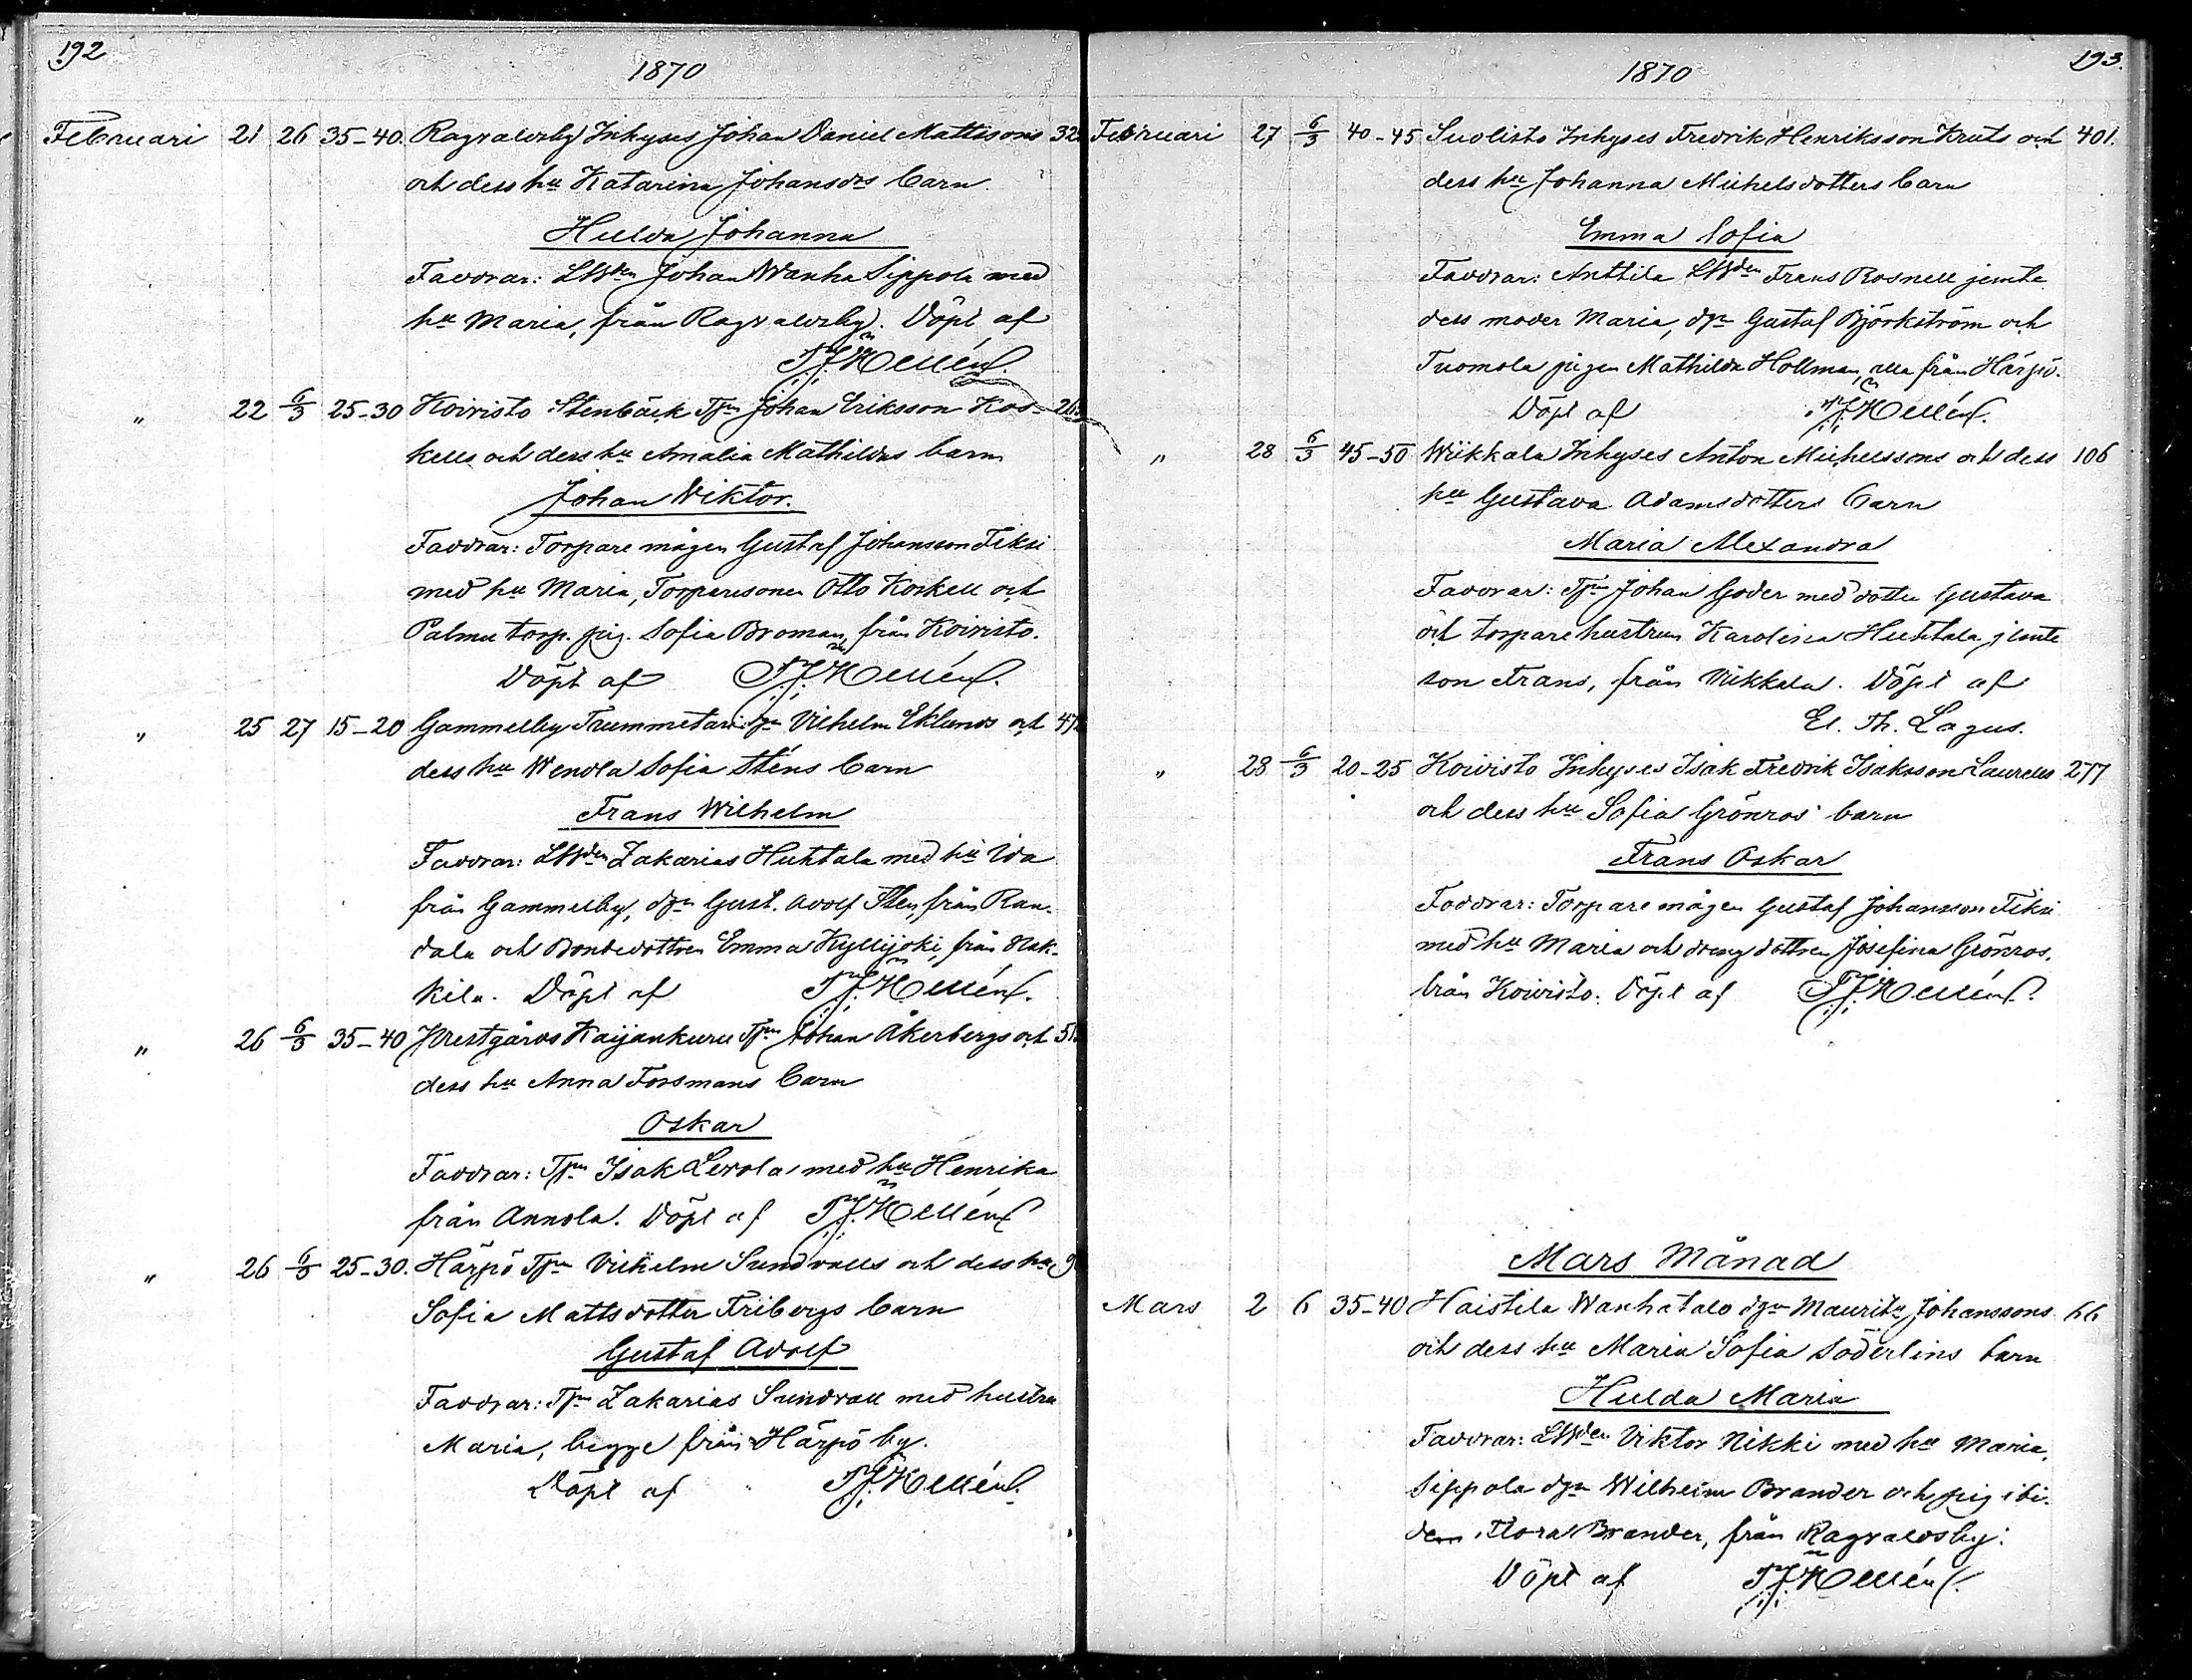 192
1870
Februari 21 26 35-40. Ragvaldsby Inhyses Johan Daniel Mattssons 32
och dess hu Katarina Johansdrs barn
Hulda Johanna
Faddrar: LBden Johan Wanha Sippola med
hu Maria, från Ragvaldsby. Döpt af
Hellén.
" 22 6/3 25-30 Koivisto Stenbäck Tpn Johan Eriksson Kos-
kells och dess hu Amalia Mathildas barn
Johan Wiktor.
Faddrar: Torpare mågen Gustaf Johansson Fiksi
med hu Maria, Torparesonen Otto Koskell och
Palmu torp. pig. Sofia Broman, från Koivisto.
Döpt af Hellén.
" 25 27 15-20 Gammelby Trummetari dgn Vilhelm Eklunds och 47
dess hu Wendla Sofia Sténs barn
Frans Wilhelm
Faddrar: LBden Zakarias Huhtala med hu Ida
från Gammelby, dgn Gust. Adolf Sten, från Ran-
dala och Bondedottren Emma Kyllijoki, från Hak-
kila. Döpt af Hellén.
" 26 6/3 35-40 Prestgårds Kaijankuru Tpn Johan Åkerbergs och 51
dess hu Anna Forsmans barn
Oskar
Faddrar: Tpn Isak Levola med hu Henrika
från Annola. Döpt af Hellén
" 26 6/3 25-30. Härpö Tpn Vilhelm Sundvalls och dess hu 9
Sofia Mattsdotter Fribergs barn
Gustaf Adolf
Faddrar: Tpn Zakarias Sundvall med hustru
Maria, begge från Härpö by.
Döpt af Hellén.
193.
1870
Februari 27 6/3 40-45 Suolisto Inhyses Fredrik Henriksson Kruts och 401.
dess hu Johanna Michelsdotters barn
Emma Sofia
Faddrar: Anttila LBden Frans Rosnell jemte
dess moder Maria, dgn Gustaf Björkström och
Tuomola pigan Mathilda Hollman, alla från Härpö.
Döpt af Hellén.
" 28 6/3 45-50 Wiikkala Inhyses Anton Michelssons och dess 106
hu Gustava Adamsdotters barn
Maria Alexandra
Faddrar: Tpn Johan Goder med dotter Gustava
och torparehustrun Karolina Huhtala jemte
son Frans, från Viikkala. Döpt af
El. Th. Lagus.
" 28 6/3 20-25 Koivisto Inhyses Isak Fredrik Isaksson Laurells 277
och dess hu Sofia Grönros' barn
Frans Oskar
Faddrar: Torpare mågen Gustaf Johansson Fiksi
med hu Maria och drengdottren Josefina Grönros,
från Koivisto. Döpt af Hellén.
Mars Månad
Mars 2 6 35-40 Haistila Wanhatalo dgn Mauritz Johanssons 66
och dess hu Maria Sofia Söderlins barn
Hulda Maria
Faddrar: LBden Viktor Nikki med hu Maria,
Sippola dgn Wilhelm Brander och pig. ibi-
dem Flora Brander, från Ragvaldsby.
Döpt af Hellén.